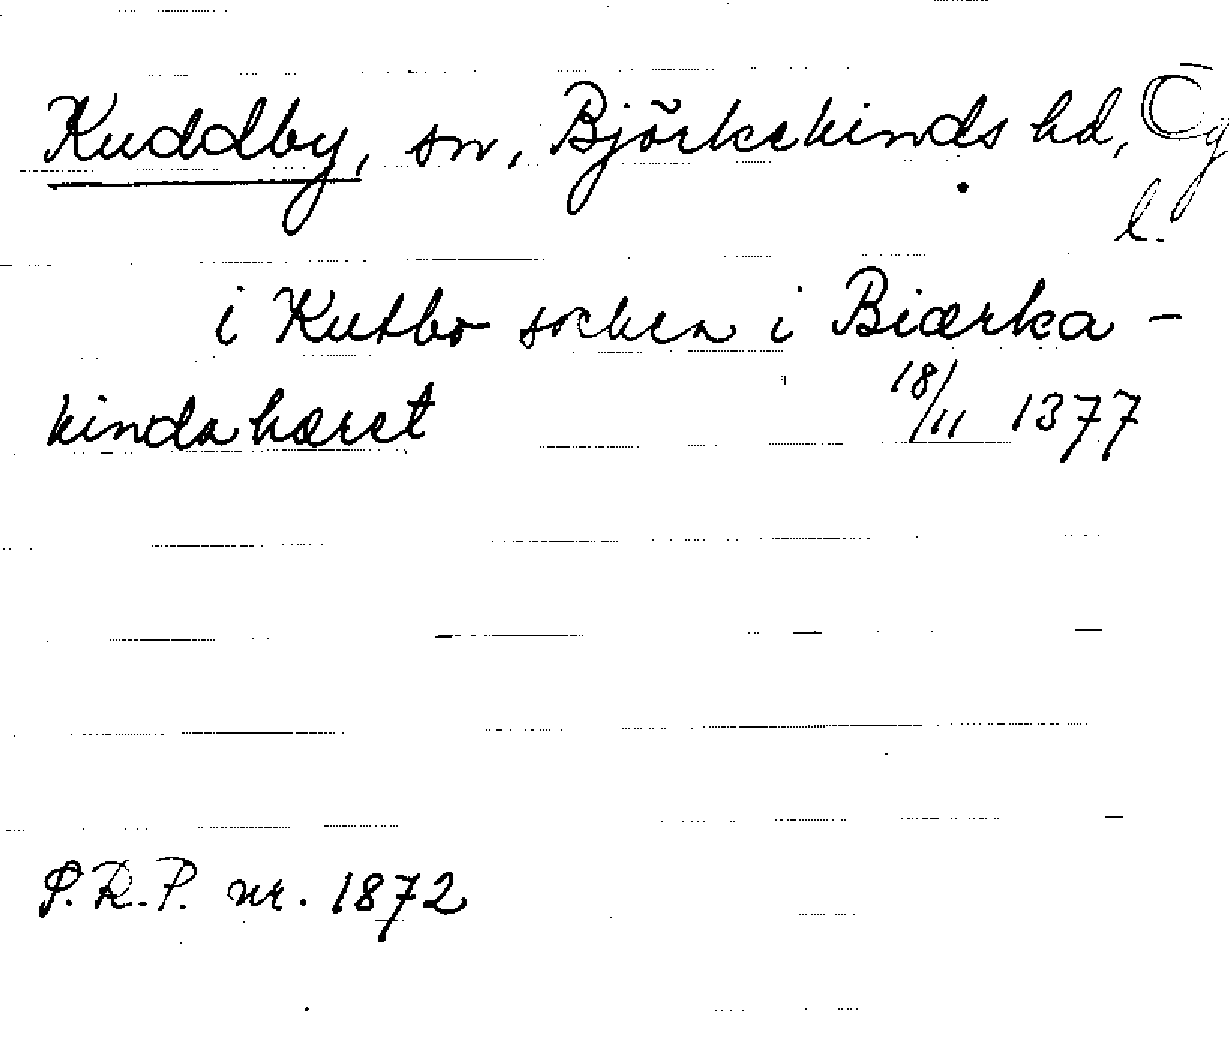 Kuddby, sn, Björkekinds hd, Ög
l.
i Kutbo sochen i Biærka-
kinda hæret 18/11 1377
S.R.P. nr. 1872